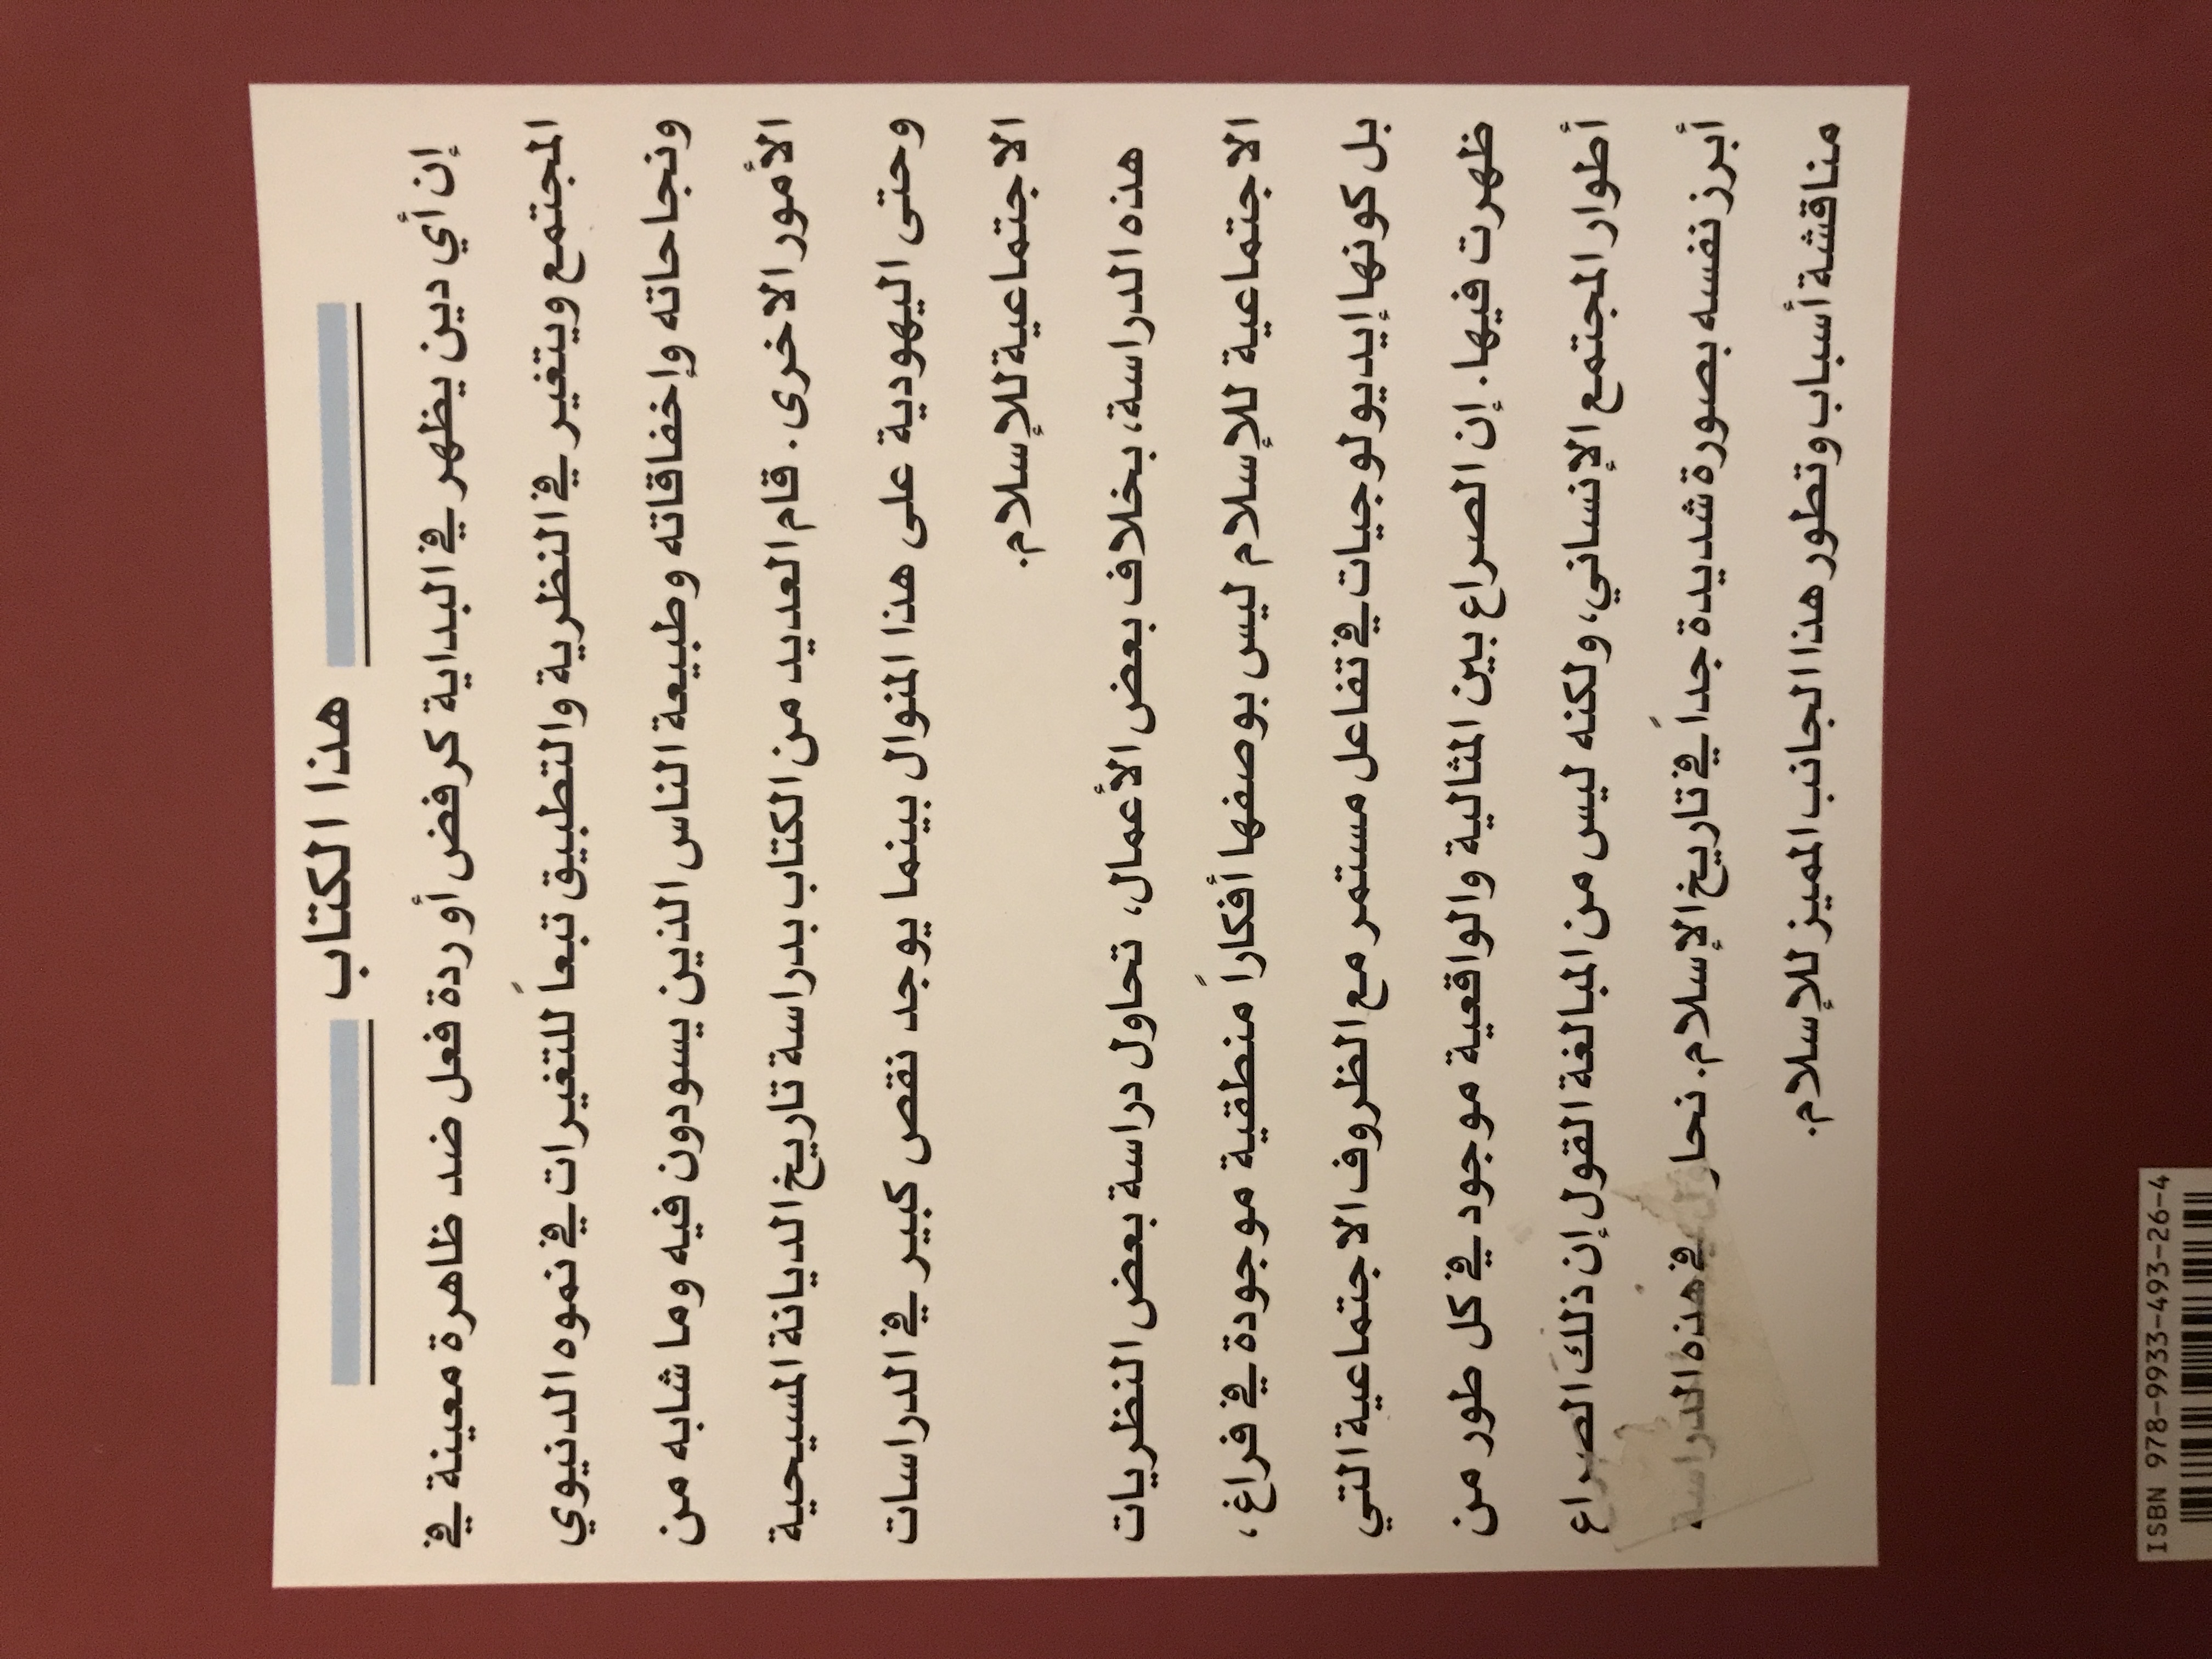 هذا الكتاب
إن أي دين يظهر في البداية كرفض أو ردة فعل ضد ظاهرة معينة في
المجتمع ويتغير في النظرية والتطبيق تبعاً للتغيرات في نموه الدنيوي
ونجاحاته وإخفاقاته وطبيعة الناس الذين يسودون فيه وما شابه من
الأمور الاخرى. قام العديد من الكتاب بدراسة تاريخ الديانة المسيحية
وحتى اليهودية على هذا المنوال بينما يوجد نقص كبير في الدراسات
الاجتماعية للإسلام.
هذه الدراسة، بخلاف بعض الأعمال، تحاول دراسة بعض النظريات
الاجتماعية للإسلام ليس بوصفها أفكاراً منطقية موجودة في فراغ،
بل كونها إيديولوجيات في تفاعل مستمر مع الظروف الاجتماعية التي
ظهرت فيها. إن الصراع بين المثالية والواقعية موجود في كل طور من
أطوار المجتمع الإنساني، ولكنه ليس من المبالغة القول إن ذلك الصراع
أبرز نفسه بصورة شديدة جداً في تاريخ الإسلام. نحاول في هذه الدراسة
مناقشة أسباب وتطور هذا الجانب المميز للإسلام.
ISBN 978-9933-493-26-4